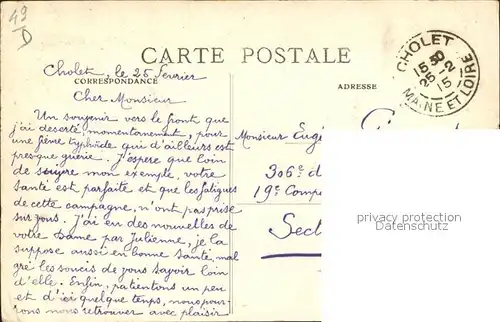 49
D
CARTE POSTALE
CORRESPONDANCE
ADRESSE
CHOLET
15 50
25 - 2
15
MAINE ET LOIRE
Cholet, le 25 Février
Cher Monsieur
Un souvenir vers le front que
j'ai deserté momentanement, pour
une fièvre typhoïde qui d'ailleurs est
presque guérie. J'espère que loin
de suivre mon exemple, votre
santé est parfaite et que les fatigues
de cette campagne, n'ont pas prise
sur vous. J'ai eu des nouvelles de
votre Dame par Julienne, je la
suppose aussi en bonne santé, mal
gré les soucis de vous savoir loin
d'elle. Enfin, patientons un peu
et d'ici quelque temps, nous pour-
rons nous retrouver avec plaisir
Monsieur Eugè
306e d
19e Comp
Sect
privacy protection
watermark